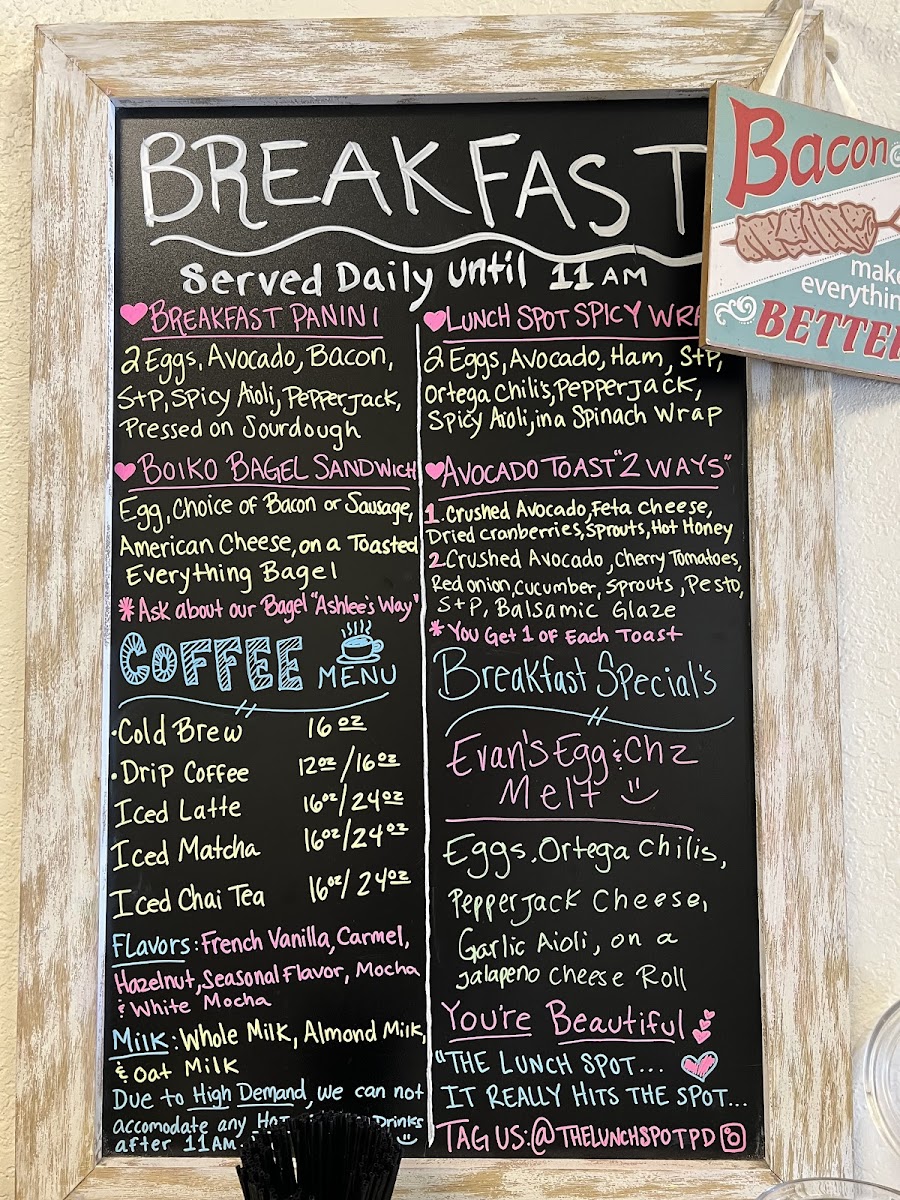 BREAKFAST
Served Daily Until 11 AM
BREAKFAST PANINI
2 Eggs, Avocado, Bacon,
S+P, Spicy Aioli, Pepperjack,
Pressed on Sourdough
BOIKO BAGEL SANDWICH
Egg, Choice of Bacon or Sausage,
American Cheese, on a Toasted
Everything Bagel
*Ask about our Bagel "Ashlee's Way"
COFFEE
MENU
•Cold Brew 16oz
•Drip Coffee 12oz/16oz
Iced Latte 16oz/24oz
Iced Matcha 16oz/24oz
Iced Chai Tea 16oz/24oz
Flavors: French Vanilla, Carmel,
Hazelnut, Seasonal Flavor, Mocha
& White Mocha
Milk: Whole Milk, Almond Milk,
& Oat Milk
Due to High Demand, we can not
accomodate any Hot Drinks
after 11AM.
LUNCH SPOT SPICY WRA
2 Eggs, Avocado, Ham, S+P,
Ortega Chili's, Pepperjack,
Spicy Aioli, in a Spinach Wrap
AVOCADO TOAST "2 WAYS"
1. Crushed Avocado, Feta Cheese,
Dried Cranberries, Sprouts, Hot Honey
2. Crushed Avocado, Cherry Tomatoes,
Red onion, Cucumber, Sprouts, Pesto,
S+P, Balsamic Glaze
*You Get 1 of Each Toast
Breakfast Special's
Evan's Egg & Chz
Melt
Eggs, Ortega Chilis,
Pepperjack Cheese,
Garlic Aioli, on a
Jalapeno Cheese Roll
You're Beautiful
"THE LUNCH SPOT...
IT REALLY HITS THE SPOT...
TAG US: @THELUNCHSPOTPD
Bacon
make
everythin
BETTE